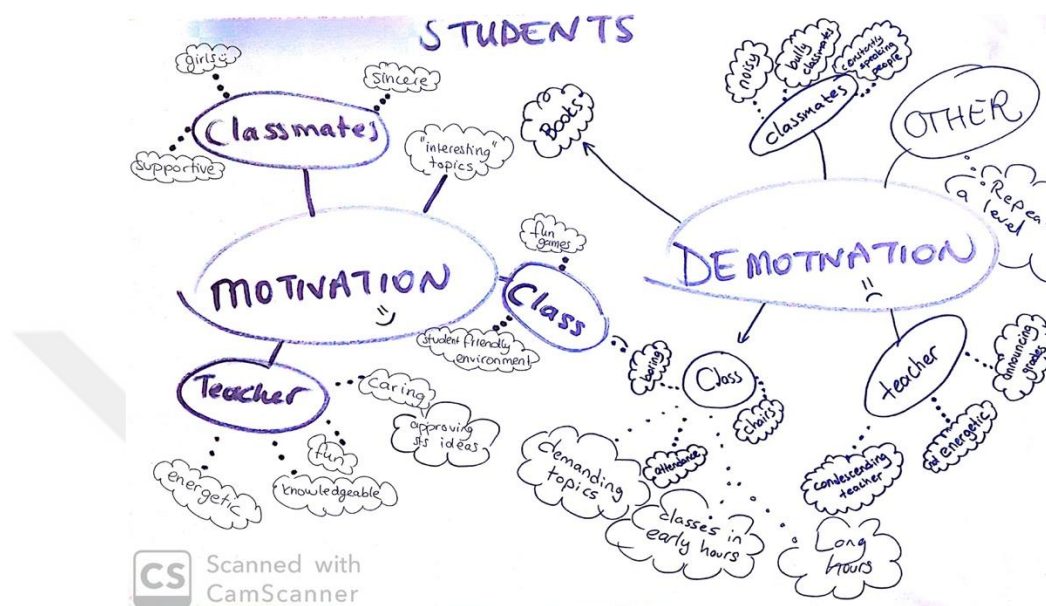 STUDENTS
girls
sincere
Classmates
supportive
"interesting"
topics
MOTIVATION
fun
games
Class
student friendly
environment
Teacher
caring
approving
sts ideas
fun
knowledgeable
energetic
Books
noisy
bully
classmates
constantly
speaking
people
classmates
OTHER
Repea
a level
DEMOTIVATION
boring
Class
chairs
attendance
demanding
topics
classes in
early hours
Long
hours
teacher
announcing
grades
not energetic
condescending
teacher
CS
Scanned with
CamScanner